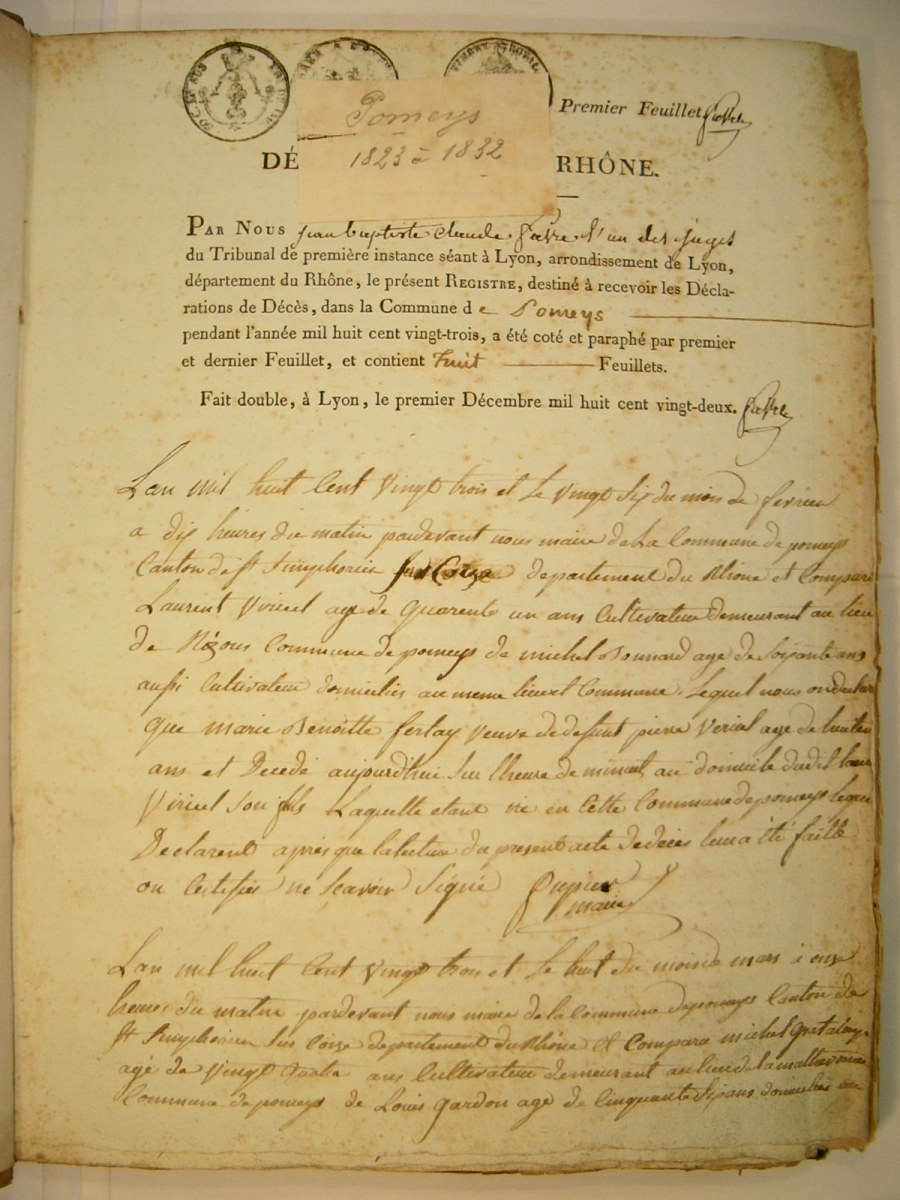 Premier Feuillet
Pomeys
1823 à 1832
DÉ RHÔNE.
PAR NOUS jean baptiste claude favre l'un des juges
du Tribunal de première instance séant à Lyon, arrondissement de Lyon,
département du Rhône, le présent REGISTRE, destiné à recevoir les Décla-
rations de Décès, dans la Commune de Pomeys
pendant l'année mil huit cent vingt-trois, a été coté et paraphé par premier
et dernier Feuillet, et contient huit Feuillets.
Fait double, à Lyon, le premier Décembre mil huit cent vingt-deux. favre
Lan mil huit Cent Vingt trois et le vingt Six du mois de fevrier
a dix heures du matin pardevant nous maire de La Commune de pomeys
Canton de st Simphorien Sur Coize departement du Rhone et Compard
Laurent Viricel age de quarente un ans Cultivateur demeurant au lieu
de Commune de pomeys de michel Bonnard age de Soixante ans
aussi Cultivateur domiciliés au meme lieu et Commune. Lequel nous on declar
que marie Benoitte ferlay veuve de defunt pierre Verial age de
ans et Decedé aujourdhui Sur lheure de minuit au domicile dudit laur
Viricel Son fils Laquelle etant ne en Cette Commune de pomeys leque
Declarent après que la lecture du present acte de deces leur a été faitte
on Certifiés ne Scavoir Signé Dupier
maire
Lan mil huit Cent Vingt trois et le huit du mois de mars à onze
heures du matin pardevant nous maire de la Commune de pomeys Canton de
st Simphorien Sur Coize departement du Rhône et Compara michel
agé de Vingt ans Cultivateur demeurant au lieu de
Commune de pomeys de Louis gardon agé de Cinquante Six ans domiciliés au